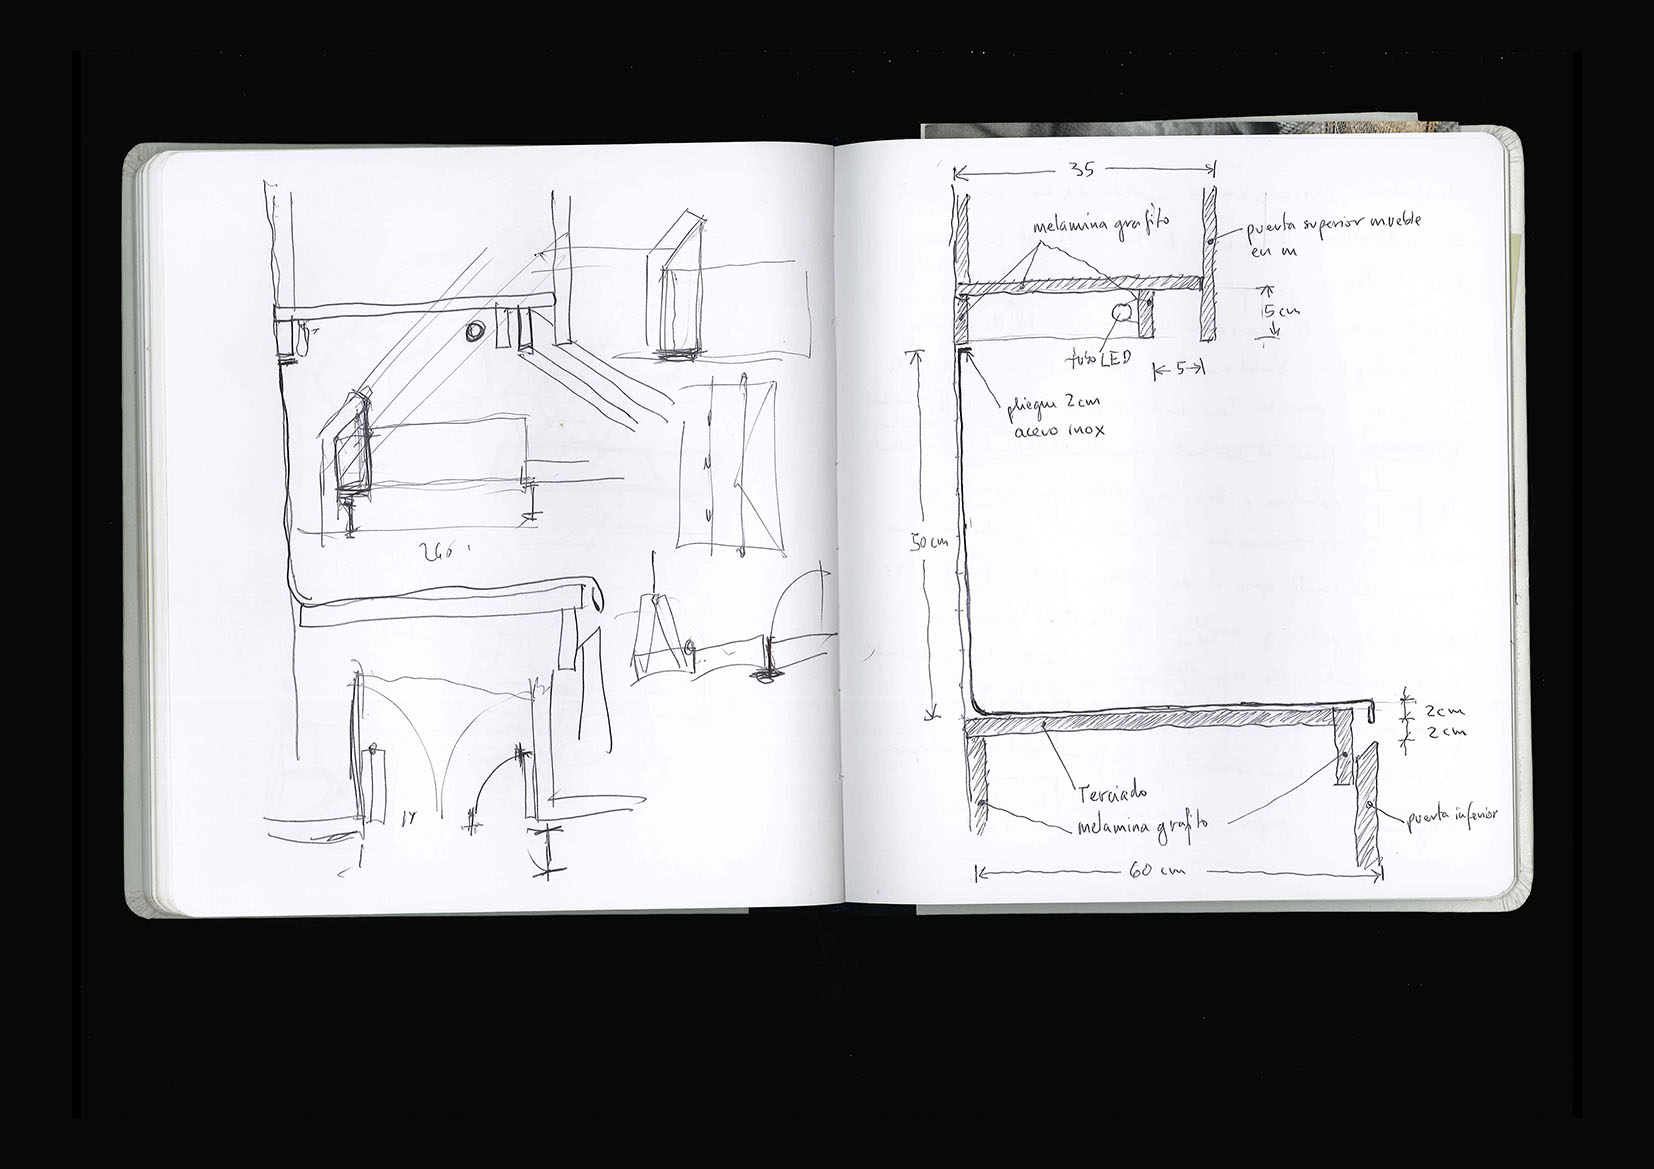 35
melamina grafito
puerta superior mueble
en m
5 cm
tubo LED
5
pliegue 2cm
acero inox
50 cm
2cm
2 cm
Terciado
melamina grafito
puerta inferior
60 cm